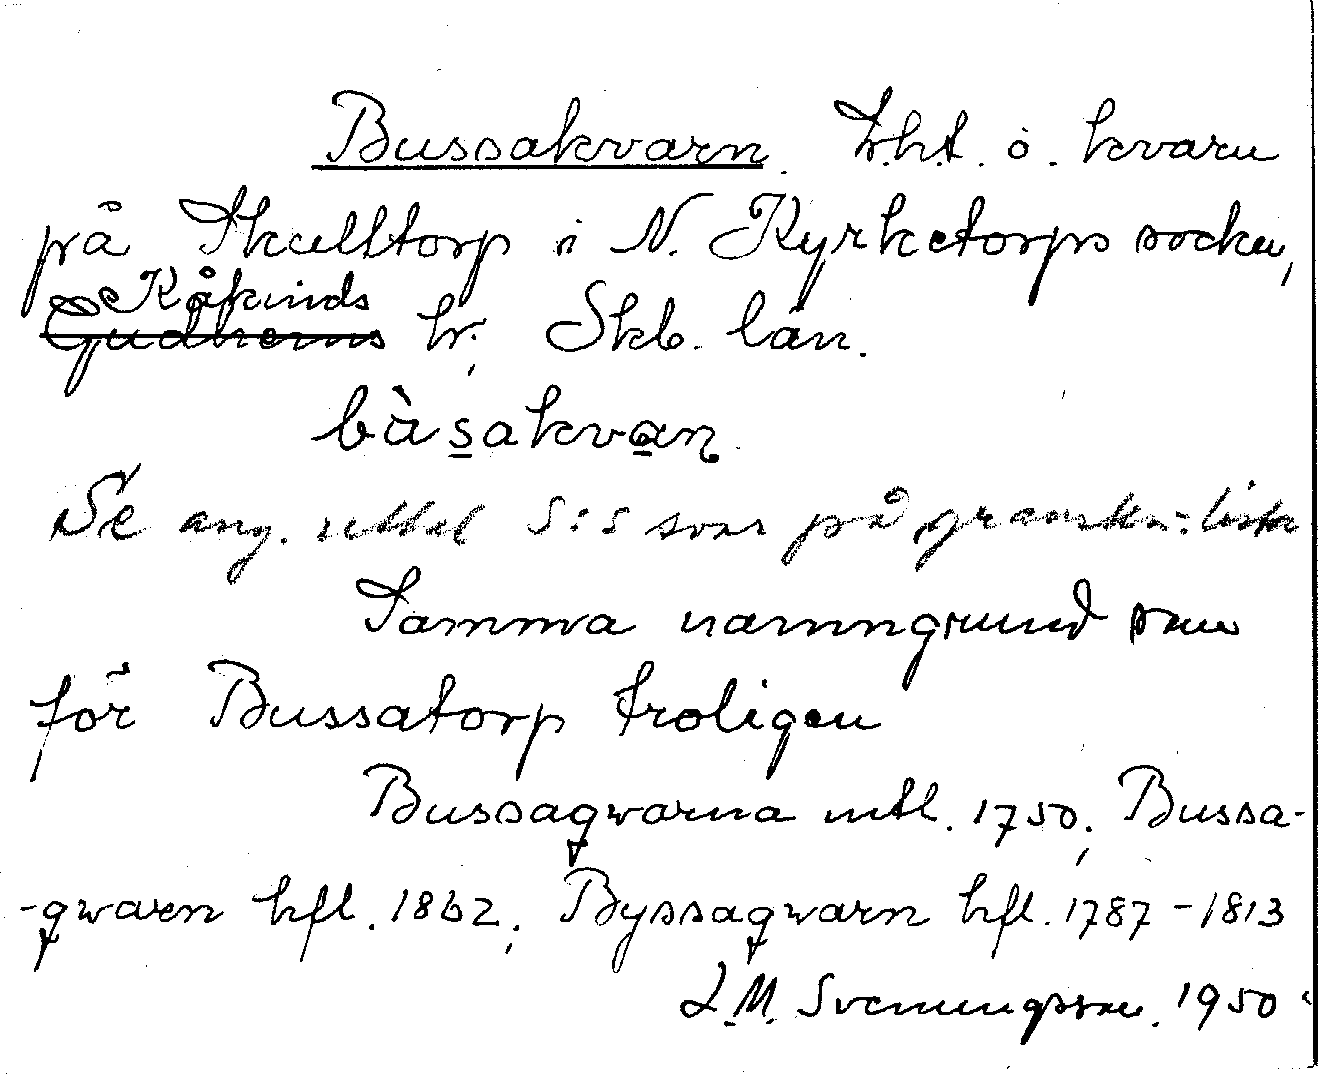 Bussakvarn. Lht. o. kvarn
på Skulltorp i N. Kyrketorps socken,
Kåkinds
Gudhems hr; Skb. län.
bàsakvan.
Se ang. uttal S:s svar på granskn:lista
Samma namngrund som
för Bussatorp troligen
Bussaqwarna mtl. 1750; Bussa-
-qwarn hfl. 1862; Byssaqwarn hfl. 1787-1813
L.M. Svenungsson. 1950